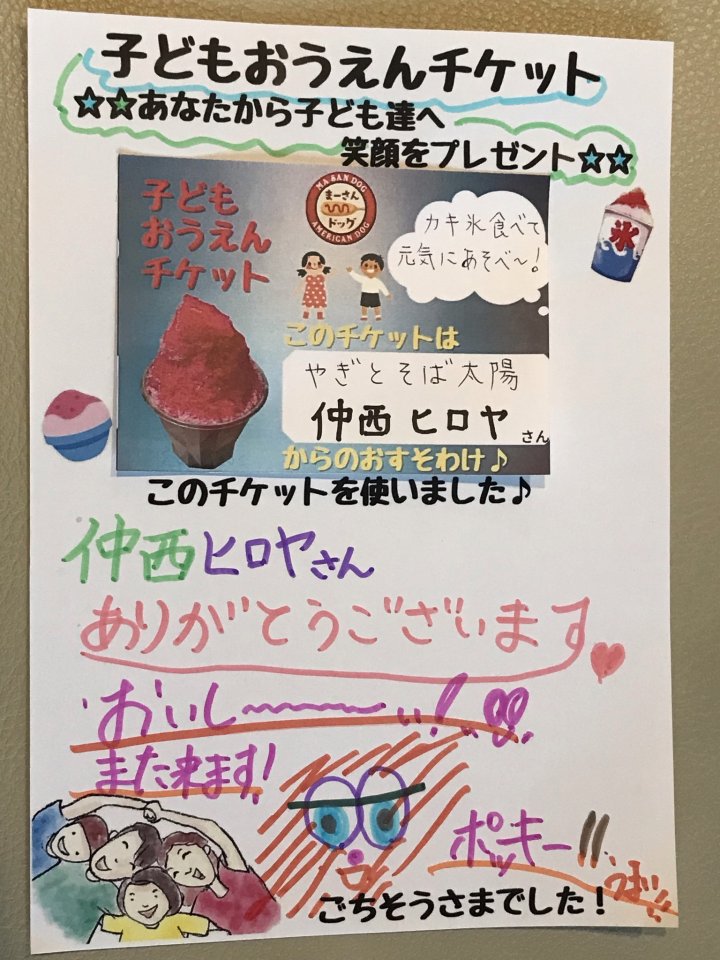 子どもおうえんチケット
☆☆あなたから子ども達へ
笑顔をプレゼント☆☆
子ども
おうえん
チケット
MA SAN DOG
まーさん
ドッグ
AMERICAN DOG
カキ氷食べて
元気にあそべ〜!
氷
このチケットは
やぎとそば太陽
仲西 ヒロヤ
さん
からのおすそわけ♪
このチケットを使いました♪
仲西ヒロヤさん
ありがとうございます
おいし〜〜〜〜い!
また来ます!
ポッキー!!
ごちそうさまでした!